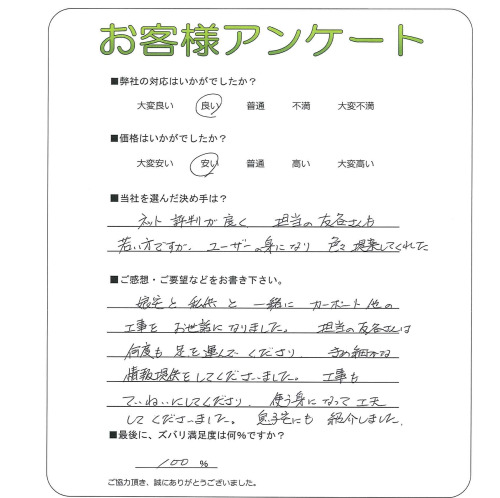 お客様アンケート
■弊社の対応はいかがでしたか？
大変良い　良い　普通　不満　大変不満
■価格はいかがでしたか？
大変安い　安い　普通　高い　大変高い
■当社を選んだ決め手は？
ネット 評判が良く、担当の友呂さんも
若い方ですが、ユーザーの身になり 色々提案してくれた
■ご感想・ご要望などをお書き下さい。
娘宅と 私共 と 一緒に カーポート 他の
工事を お世話になりました。 担当の友呂さんは
何度も 足を運んで くださり、 きめ細かな
情報提供をしてくださいました。 工事も
ていねいにしてくださり、使う身になって工夫
してくださいました。 息子宅にも 紹介しました。
■最後に、ズバリ満足度は何％ですか？
100 %
ご協力頂き、誠にありがとうございました。